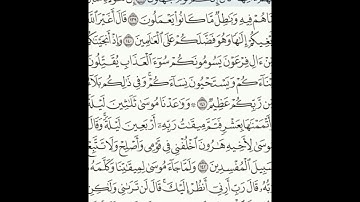 مَّا هُمْ فِيهِ وَبَٰطِلٌ مَّا كَانُوا۟ يَعْمَلُونَ ١٣٩ قَالَ أَغَيْرَ ٱللَّهِ
إِلَٰهًا وَهُوَ فَضَّلَكُمْ عَلَى ٱلْعَٰلَمِينَ ١٤٠ وَإِذْ
مِّنْ ءَالِ فِرْعَوْنَ يَسُومُونَكُمْ سُوٓءَ ٱلْعَذَابِ يُقَتِّلُونَ
وَيَسْتَحْيُونَ نِسَآءَكُمْ وَفِى ذَٰلِكُم
مِّن رَّبِّكُمْ عَظِيمٌ ١٤١ وَوَٰعَدْنَا مُوسَىٰ ثَلَٰثِينَ لَيْلَةً
فَتَمَّ مِيقَٰتُ رَبِّهِۦٓ أَرْبَعِينَ لَيْلَةً وَقَالَ
لِأَخِيهِ هَٰرُونَ ٱخْلُفْنِى فِى قَوْمِى وَأَصْلِحْ وَلَا تَتَّبِعْ
سَبِيلَ ٱلْمُفْسِدِينَ ١٤٢ وَلَمَّا جَآءَ مُوسَىٰ لِمِيقَٰتِنَا وَكَلَّمَهُۥ
قَالَ رَبِّ أَرِنِىٓ أَنظُرْ إِلَيْكَ قَالَ لَن تَرَىٰنِى وَلَٰكِنِ